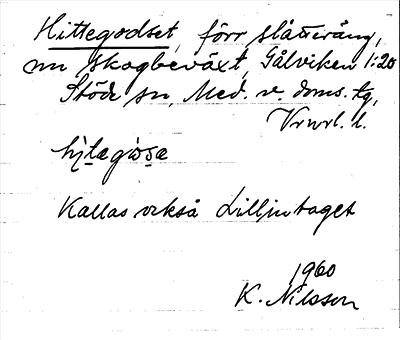 Hittegodset, förr slåtteräng,
nu skogbeväxt, Gålviken 1:20
Stöde sn, Med. v. doms. tg,
hi̱ta̱gọsa
Kallas också Lilljntaget
1960
K. Nilsson